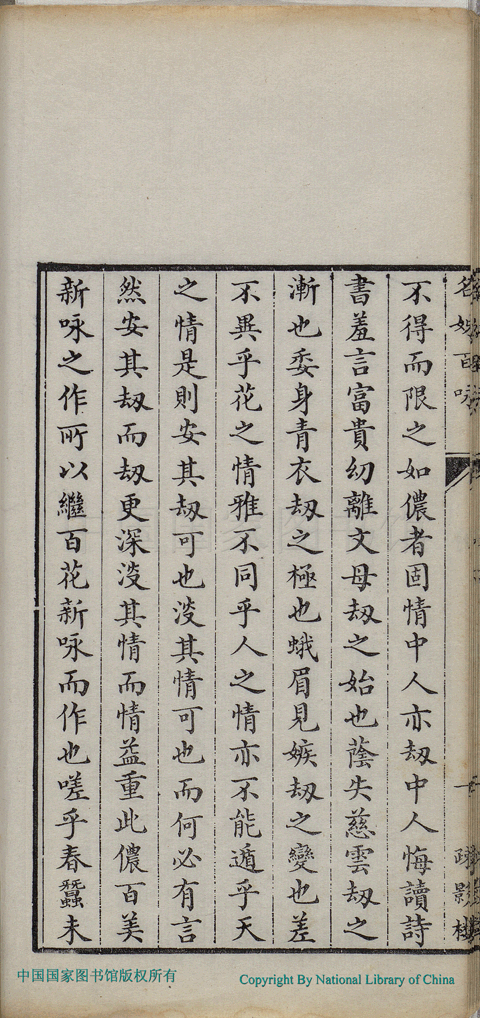 名姝百咏
不得而限之如儂者固情中人亦刼中人悔讀詩
書羞言富貴幼離文母刼之始也蔭失慈雲刼之
漸也委身青衣刼之極也蛾眉見嫉刼之變也差
不異乎花之情雅不同乎人之情亦不能遁乎天
之情是則安其刼可也没其情可也而何必有言
然安其刼而刼更深没其情而情益重此儂百美
新咏之作所以繼百花新咏而作也嗟乎春蠶未
中国国家图书馆版权所有
Copyright By National Library of China